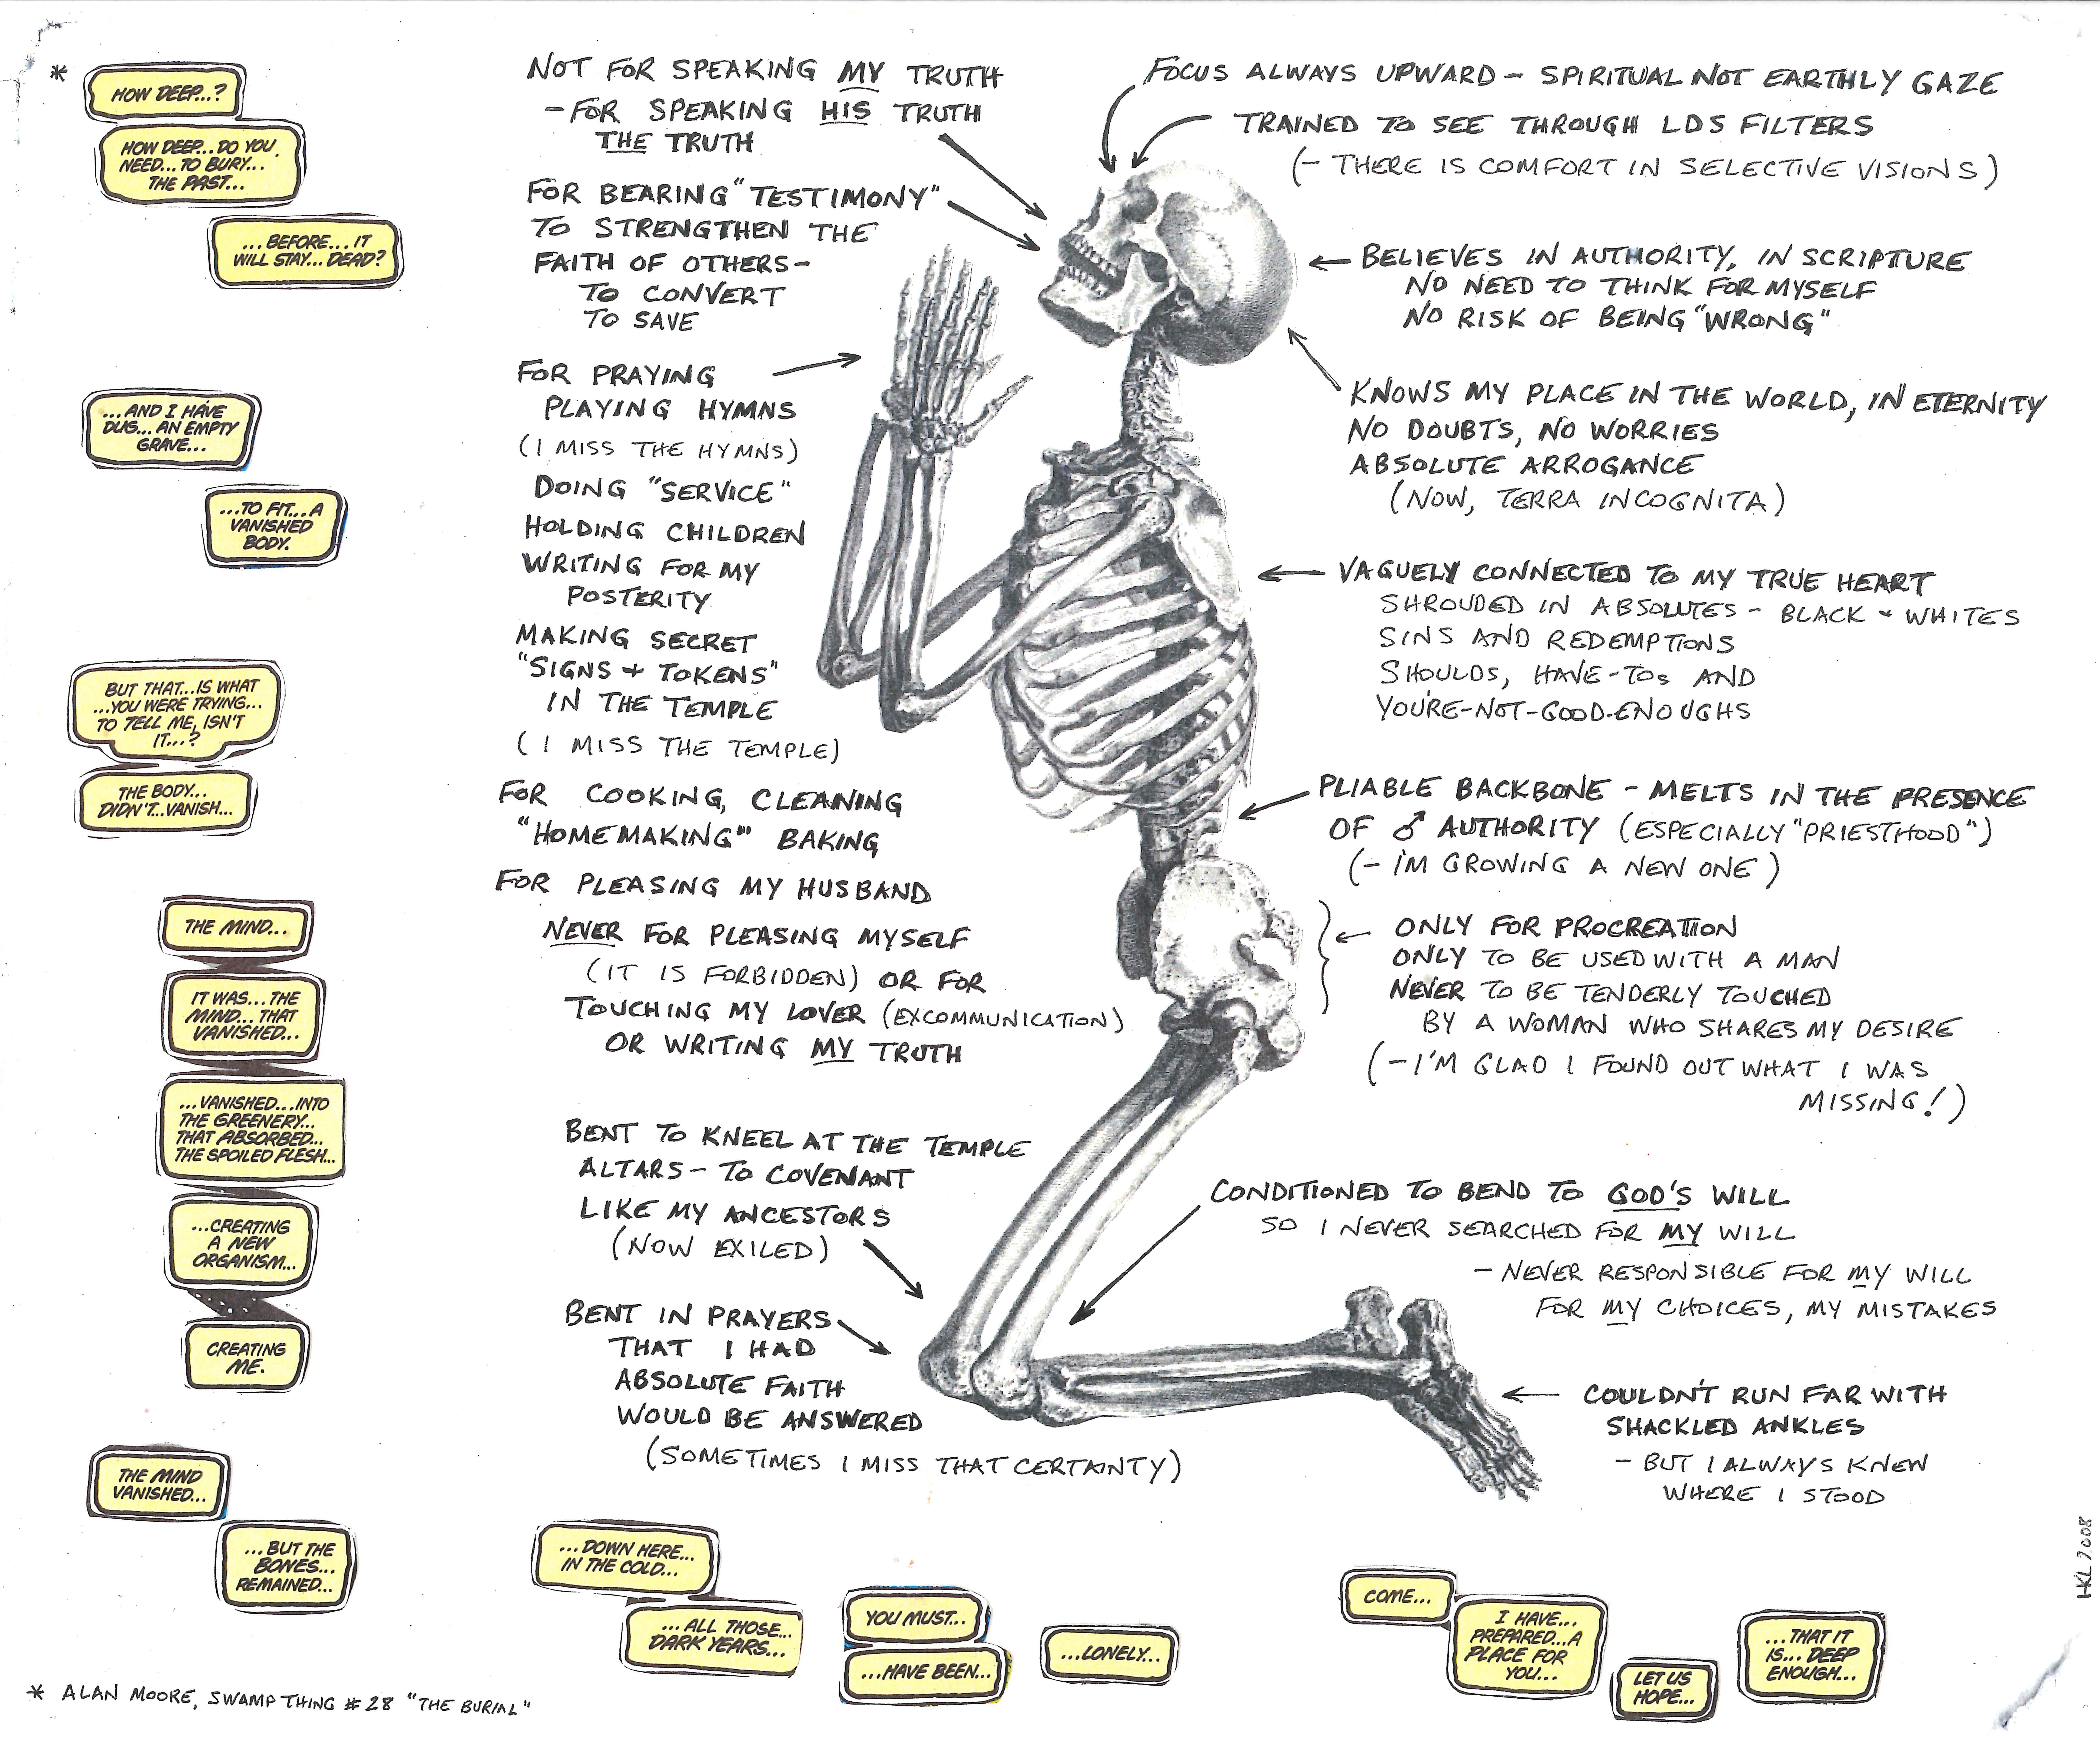 *
HOW DEEP...?
HOW DEEP...DO YOU
NEED...TO BURY...
THE PAST...
...BEFORE...IT
WILL STAY...DEAD?
...AND I HAVE
DUG...AN EMPTY
GRAVE...
...TO FIT...A
VANISHED
BODY.
BUT THAT...IS WHAT
...YOU WERE TRYING...
TO TELL ME, ISN'T
IT...?
THE BODY...
DIDN'T...VANISH...
THE MIND...
IT WAS...THE
MIND...THAT
VANISHED...
...VANISHED...INTO
THE GREENERY...
THAT ABSORBED...
THE SPOILED FLESH...
...CREATING
A NEW
ORGANISM...
CREATING
ME.
THE MIND
VANISHED...
...BUT THE
BONES...
REMAINED...
...DOWN HERE...
IN THE COLD...
...ALL THOSE...
DARK YEARS...
YOU MUST...
...HAVE BEEN...
...LONELY...
COME...
I HAVE...
PREPARED...A
PLACE FOR
YOU...
LET US
HOPE...
...THAT IT
IS...DEEP
ENOUGH...
NOT FOR SPEAKING MY TRUTH
- FOR SPEAKING HIS TRUTH
THE TRUTH
FOR BEARING "TESTIMONY"
TO STRENGTHEN THE
FAITH OF OTHERS-
TO CONVERT
TO SAVE
FOR PRAYING
PLAYING HYMNS
(I MISS THE HYMNS)
DOING "SERVICE"
HOLDING CHILDREN
WRITING FOR MY
POSTERITY
MAKING SECRET
"SIGNS + TOKENS"
IN THE TEMPLE
(I MISS THE TEMPLE)
FOR COOKING, CLEANING
"HOMEMAKING" BAKING
FOR PLEASING MY HUSBAND
NEVER FOR PLEASING MYSELF
(IT IS FORBIDDEN) OR FOR
TOUCHING MY LOVER (EXCOMMUNICATION)
OR WRITING MY TRUTH
BENT TO KNEEL AT THE TEMPLE
ALTARS - TO COVENANT
LIKE MY ANCESTORS
(NOW EXILED)
BENT IN PRAYERS
THAT I HAD
ABSOLUTE FAITH
WOULD BE ANSWERED
(SOMETIMES I MISS THAT CERTAINTY)
FOCUS ALWAYS UPWARD - SPIRITUAL NOT EARTHLY GAZE
TRAINED TO SEE THROUGH LDS FILTERS
(- THERE IS COMFORT IN SELECTIVE VISIONS)
BELIEVES IN AUTHORITY, IN SCRIPTURE
NO NEED TO THINK FOR MYSELF
NO RISK OF BEING "WRONG"
KNOWS MY PLACE IN THE WORLD, IN ETERNITY
NO DOUBTS, NO WORRIES
ABSOLUTE ARROGANCE
(NOW, TERRA INCOGNITA)
VAGUELY CONNECTED TO MY TRUE HEART
SHROUDED IN ABSOLUTES - BLACK + WHITES
SINS AND REDEMPTIONS
SHOULDS, HAVE-TOs AND
YOU'RE-NOT-GOOD-ENOUGHS
PLIABLE BACKBONE - MELTS IN THE PRESENCE
OF ♂ AUTHORITY (ESPECIALLY "PRIESTHOOD")
(- I'M GROWING A NEW ONE)
ONLY FOR PROCREATION
ONLY TO BE USED WITH A MAN
NEVER TO BE TENDERLY TOUCHED
BY A WOMAN WHO SHARES MY DESIRE
(- I'M GLAD I FOUND OUT WHAT I WAS
MISSING!)
CONDITIONED TO BEND TO GOD'S WILL
SO I NEVER SEARCHED FOR MY WILL
- NEVER RESPONSIBLE FOR MY WILL
FOR MY CHOICES, MY MISTAKES
COULDN'T RUN FAR WITH
SHACKLED ANKLES
- BUT I ALWAYS KNEW
WHERE I STOOD
HKL 2008
* ALAN MOORE, SWAMP THING #28 "THE BURIAL"